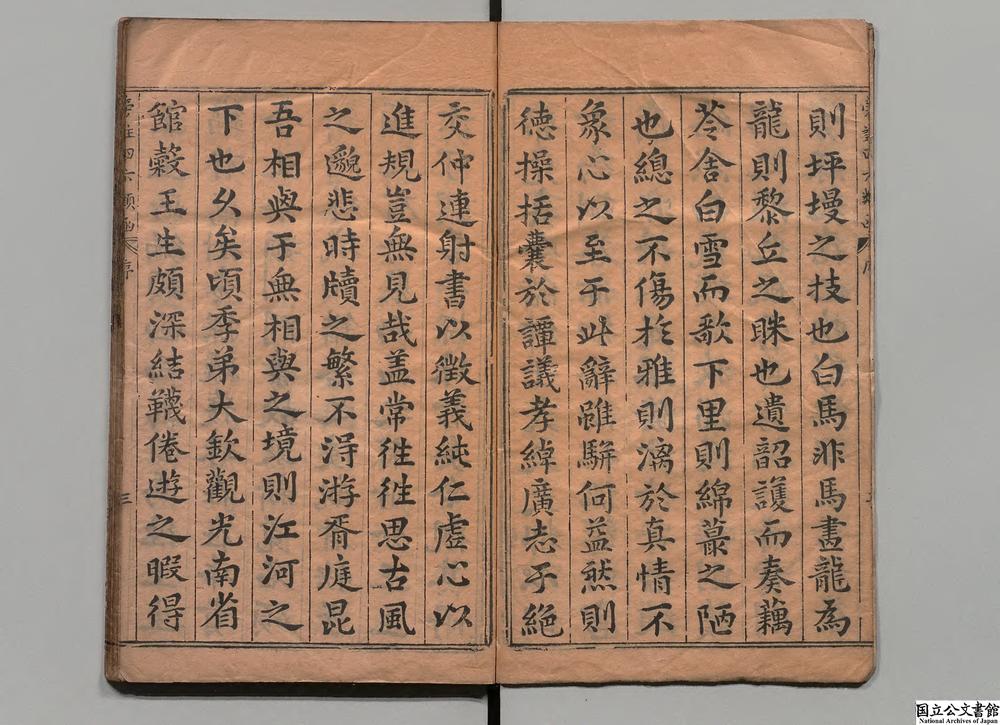 則坪墁之技也白馬非馬畫龍為
龍則黎丘之眛也遺韶護而奏藕
苓舍白雪而歌下里則綿蕞之陋
也總之不傷於雅則漓於真情不
象心以至于此辭雖駢何益然則
德操括囊於譚議孝綽廣志于絕
交仲連射書以徵義純仁虛心以
進規豈無見哉蓋常徃徃思古風
之邈悲時牘之繁不淂游胥庭昆
吾相與于無相與之境則江河之
下也久矣頃季弟大欽觀光南省
館穀王生頗深結韈倦遊之暇得
序
三
国立公文書館
National Archives of Japan